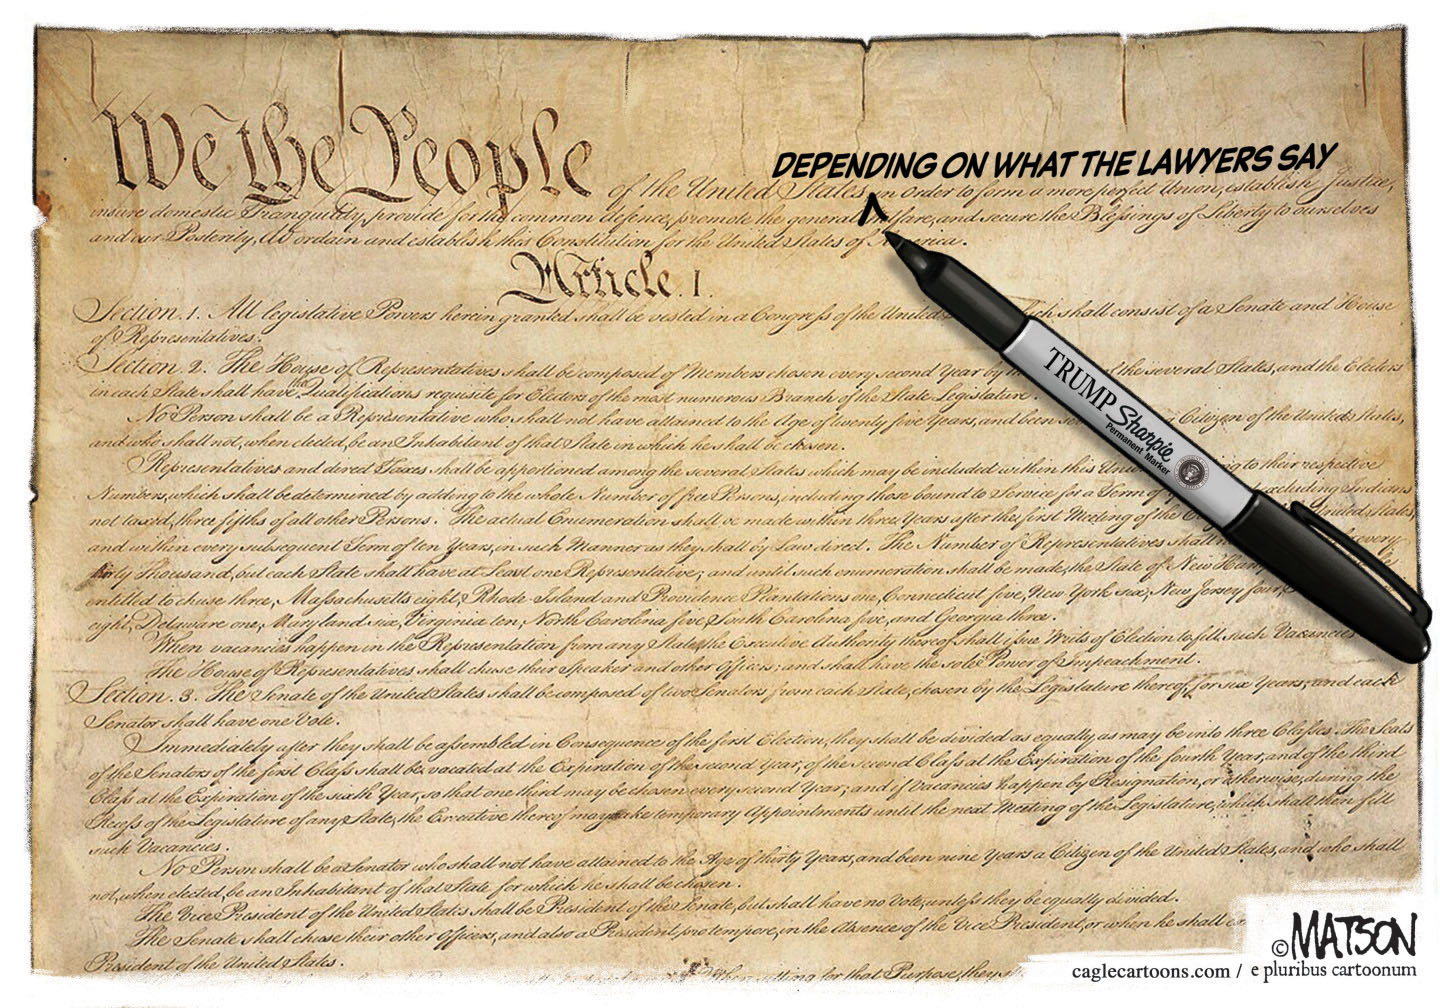 DEPENDING ON WHAT THE LAWYERS SAY
We the People of the United States, in Order to form a more perfect Union, establish Justice,
insure domestic Tranquility, provide for the common defence, promote the general Welfare, and secure the Blessings of Liberty to ourselves
and our Posterity, do ordain and establish this Constitution for the United States of America.
Article. I.
Section. 1. All legislative Powers herein granted shall be vested in a Congress of the United which shall consist of a Senate and House
of Representatives.
Section. 2. The House of Representatives shall be composed of Members chosen every second Year by of the several States, and the Electors
in each State shall have the Qualifications requisite for Electors of the most numerous Branch of the State Legislature.
No Person shall be a Representative who shall not have attained to the Age of twenty five Years, and been Citizen of the United States,
and who shall not, when elected, be an Inhabitant of that State in which he shall be chosen.
Representatives and direct Taxes shall be apportioned among the several States which may be included within this to their respective
Numbers, which shall be determined by adding to the whole Number of free Persons, including those bound to Service for a Term of excluding Indians
not taxed, three fifths of all other Persons. The actual Enumeration shall be made within three Years after the first Meeting of the United States,
and within every subsequent Term of ten Years, in such Manner as they shall by Law direct. The Number of Representatives shall every
thirty Thousand, but each State shall have at Least one Representative; and until such enumeration shall be made, the State of New
entitled to chuse three, Massachusetts eight, Rhode-Island and Providence Plantations one, Connecticut five, New York six, New Jersey four,
eight, Delaware one, Maryland six, Virginia ten, North Carolina five, South Carolina five, and Georgia three.
When vacancies happen in the Representation from any State, the Executive Authority thereof shall issue Writs of Election to fill such Vacancies
The House of Representatives shall chuse their Speaker and other Officers; and shall have the sole Power of Impeachment.
Section. 3. The Senate of the United States shall be composed of two Senators from each State, chosen by the Legislature thereof, for six Years; and each
Senator shall have one Vote.
Immediately after they shall be assembled in Consequence of the first Election, they shall be divided as equally as may be into three Classes. The Seats
of the Senators of the first Class shall be vacated at the Expiration of the second Year, of the second Class at the Expiration of the fourth Year, and of the third
Class at the Expiration of the sixth Year, so that one third may be chosen every second Year; and if Vacancies happen by Resignation, or otherwise, during the
Recess of the Legislature of any State, the Executive thereof may make temporary Appointments until the next Meeting of the Legislature, which shall then fill
such Vacancies.
No Person shall be a Senator who shall not have attained to the Age of thirty Years, and been nine Years a Citizen of the United States, and who shall
not, when elected, be an Inhabitant of that State for which he shall be chosen.
The Vice President of the United States shall be President of the Senate, but shall have no Vote, unless they be equally divided.
The Senate shall chuse their other Officers, and also a President pro tempore, in the Absence of the Vice President, or when he shall
President of the United States.
When sitting for that Purpose, they
TRUMP Sharpie
Permanent Marker
© MATSON
caglecartoons.com / e pluribus cartoonum